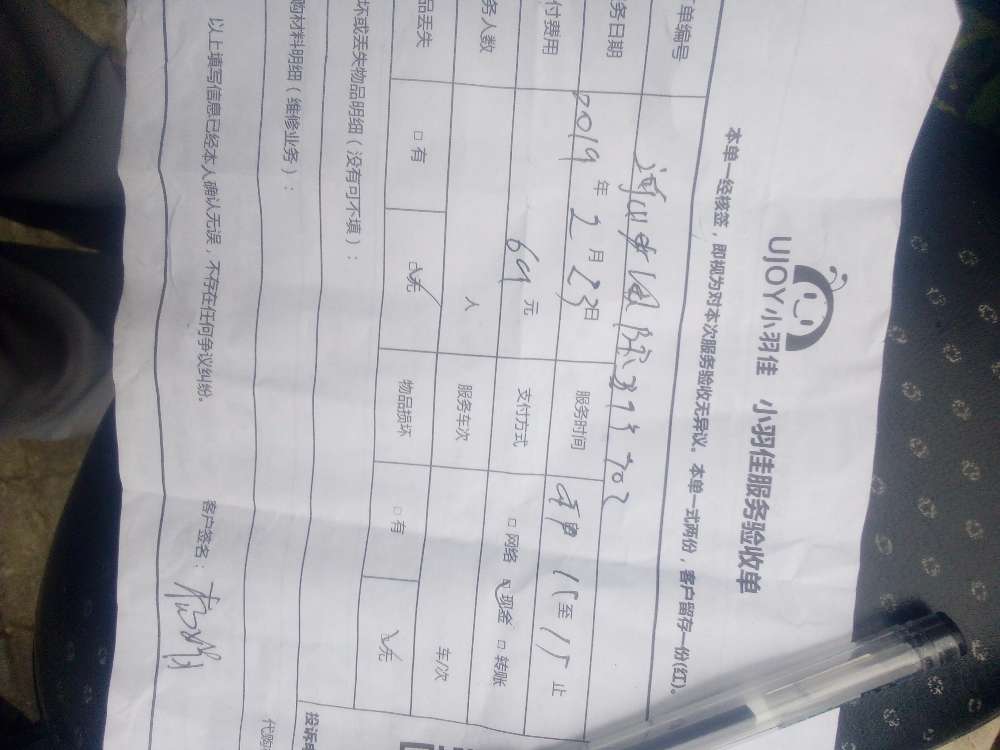 UJOY小羽佳 小羽佳服务验收单
本单一经核签，即视为对本次服务验收无异议。本单一式两份，客户留存一份(红)。
单编号
务日期 2019年2月23日 服务时间 至15止
付费用 69元 支付方式 □网络 ☑现金 □转账
务人数 人 服务车次 车/次
品丢失 □有 ☑无 物品损坏 □有 ☑无
坏或丢失物品明细（没有可不填）：
购材料明细（维修业务）：
投诉
代购
以上填写信息已经本人确认无误，不存在任何争议纠纷。 客户签名：